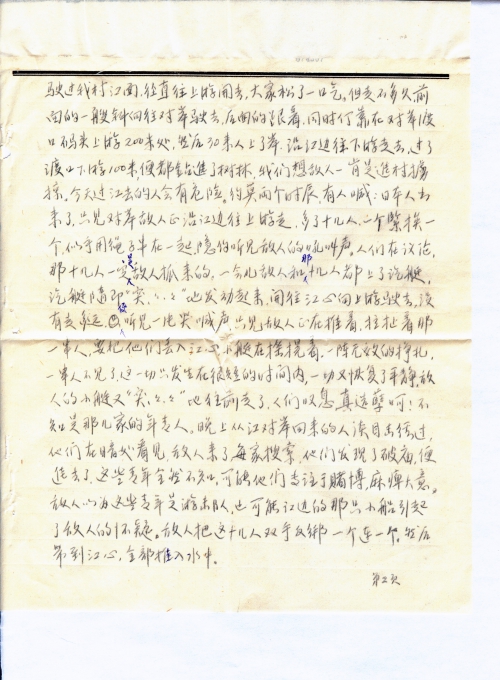 驶过我村江面,径直往上游开去,大家松了一口气。但走不多久前
面的一艘斜向往对岸驶去,后面的跟着,同时停靠在对岸渡
口码头上游200米处,然后30来人上了岸,沿江边往下游走去,过了
渡口下游100米,便都钻进了树林,我们想敌人一肯是进村掳
掠。今天过江去的人会有危险,约莫两个时辰,有人喊:日本人出
来了,只见对岸敌人正沿江边往上游走,多了十几人,一个紧挨一
个,似乎用绳子牵在一起,隐约听见敌人的吼叫声。人们在议论,
那十几人一定是敌人抓来的,一会儿敌人和那十几人都上了汽艇,
汽艇随即"突、々、々"地发动起来,开往江心向上游驶去,没
有走多远,便听见一片哭喊声,只见敌人正在推着,拉扯着那
一串人,要把他们丢入江心,小艇在摇摆着,一阵无效的挣扎,
一串人不见了,这一切只发生在很短的时间内,一切又恢复了平静,敌
人的小艇又"突、々、々"地往前走了,人们叹息,真造孽呵!不
知是那几家的年青人。晚上从江对岸回来的人谈目击经过,
他们在暗处看见,敌人来了每家搜索,他们发现了破庙,便
进去了,这些青年全然不知,可能他们专注于赌博,麻痹大意。
敌人以为这些青年是游击队,也可能江边的那只小船引起
了敌人的怀疑。敌人把这十几人双手反绑一个连一个。然后
带到江心,全部推入水中。
第2页